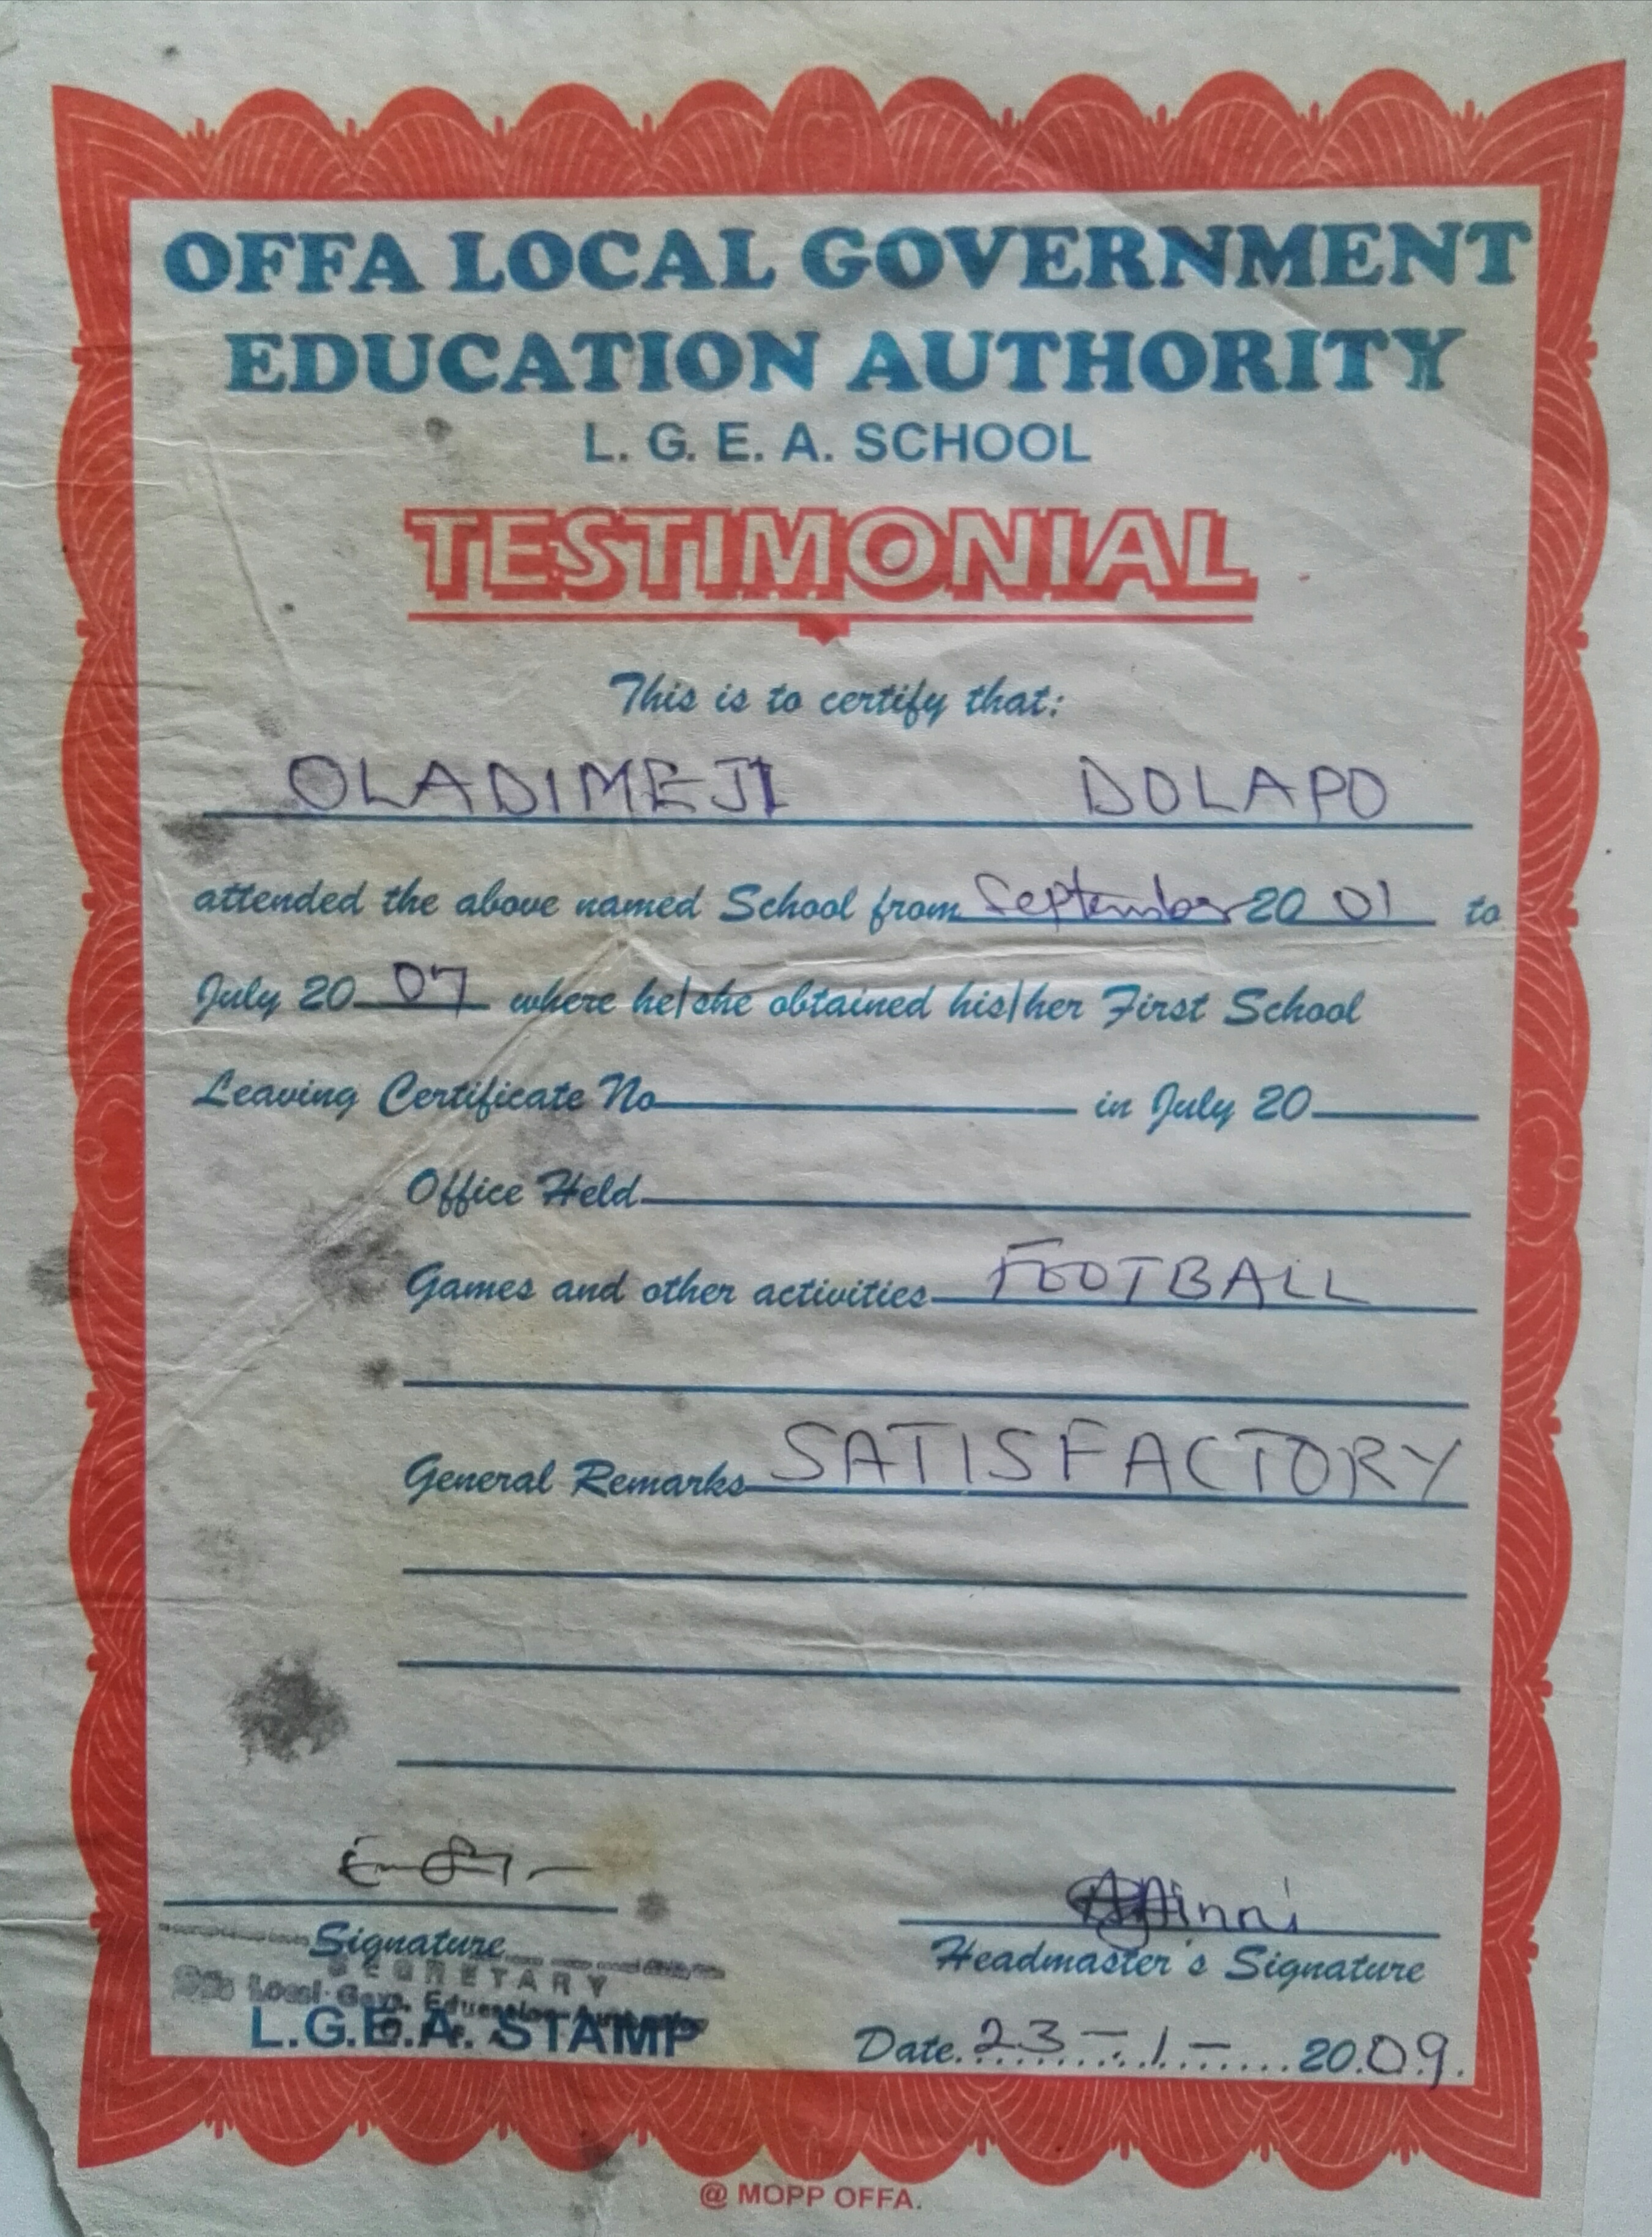 OFFA LOCAL GOVERNMENT
EDUCATION AUTHORITY
L. G. E. A. SCHOOL
TESTIMONIAL
This is to certify that:
OLADIMEJI DOLAPO
attended the above named School from September 20 01 to
July 20 07 where he/she obtained his/her First School
Leaving Certificate No in July 20
Office Held
Games and other activities FOOTBALL
General Remarks SATISFACTORY
Signature
Headmaster's Signature
SECRETARY
Local Govt. Education Authority
L.G.E.A. STAMP
Date 23 - 1 - 20.09.
@ MOPP OFFA.